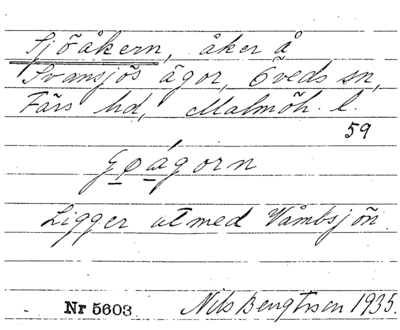 Sjöåkern, åker å
Svansjös ägor, Öveds sn,
Färs hd, Malmöh. l.
59
Ligger utmed Vombsjön.
Nr 5603. Nils Bengtsson 1935.